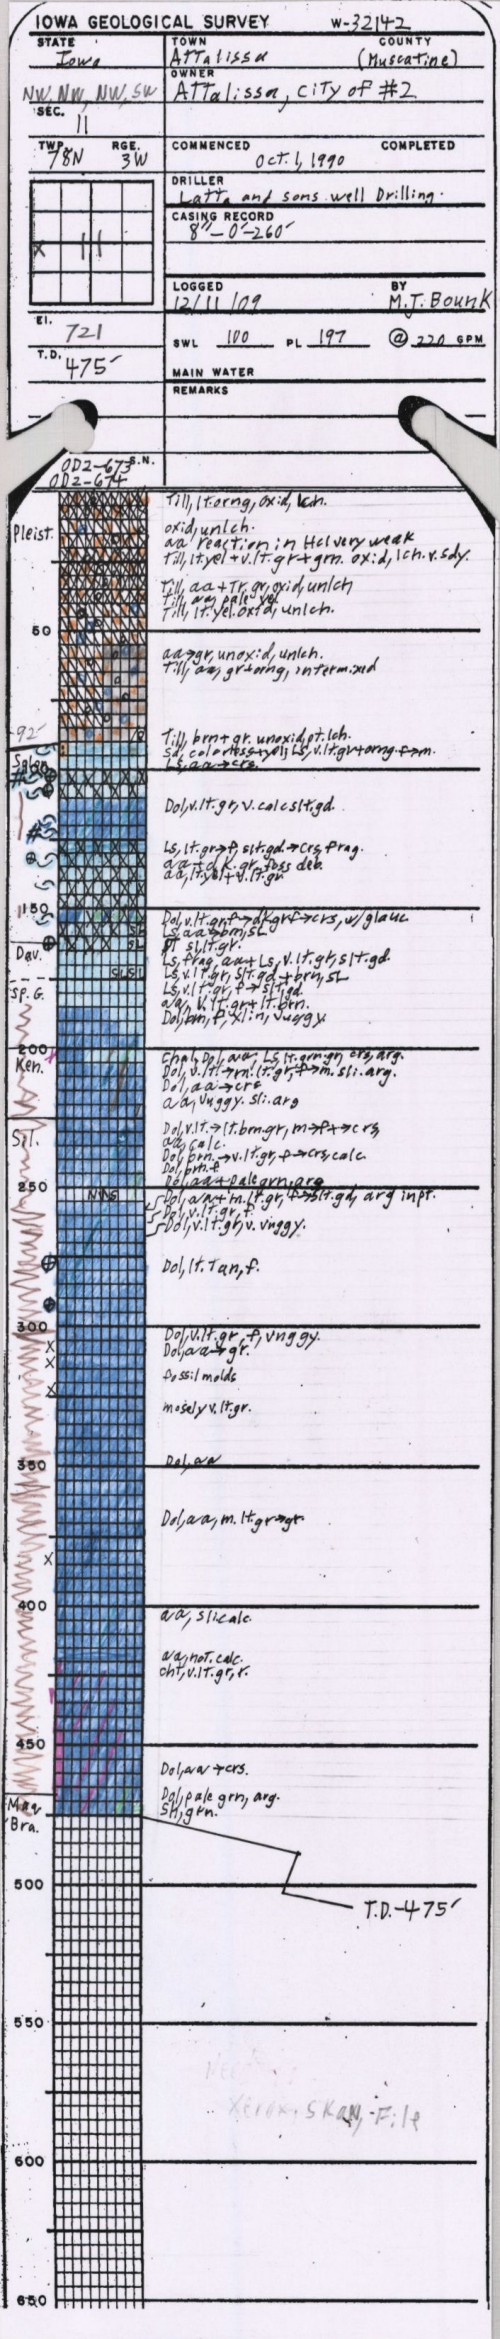 IOWA GEOLOGICAL SURVEY W-32142
STATE
Iowa
TOWN COUNTY
Attalissa (Muscatine)
OWNER
NW, NW, NW, SW Attalissa, city of #2
SEC.
11
TWP. RGE.
78N 3W
COMMENCED COMPLETED
Oct. 1, 1990
DRILLER
Latta and sons well Drilling.
CASING RECORD
8"-0'-260'
X 11
LOGGED BY
12/11/09 M.J. Bounk
El.
721
SWL 100 PL 197 @ 220 GPM
T.D.
475'
MAIN WATER
REMARKS
S.N.
OD2-673
OD2-674
Till, lt. orng, oxid, lch.
Pleist.
oxid, unlch.
aa reaction in Hcl very weak
Till, lt yel + v. lt. gr + grn. oxid, lch. v. sdy.
Till, aa + Tr. gr, oxid, unlch
Till, aa, pale yel
Till, lt. yel. oxid, unlch.
50
aa→gr, unoxid, unlch.
Till, aa, gr + orng, intermixed
92'
Till, brn + gr. unoxid, pt. lch.
Ls, aa → crs.
Dol, v. lt. gr, v. calc slt. gd.
Ls, lt. gr→f, slt. gd.→crs, frag.
aa + dk. gr. foss deb.
aa, lt. yel + v. lt. gr
150
Dol, v. lt. gr, f→dk gr f→crs, w/glauc
Ls, aa + brn, SL
SL
SL
Dav.
Ls, frag, aa + Ls, v. lt. gr, slt. gd.
SLSL
Ls, v. lt. gr, slt. gd + brn, SL
Sp. G.
Ls, v. lt. gr, f→slt. gd.
aa, v. lt. gr + lt. brn.
Dol, brn, f, xlin, vuggy
200
Ken.
Chal, Dol, aa, Ls, lt. grn gn, crs, arg.
Dol, v. lt→m. lt. gr, f→m. sli. arg.
Dol, aa→crs
aa, vuggy. sli. arg
Sil.
Dol, v. lt.→lt. brn gr, m→f+→crs
aa, calc.
Dol, brn.→v. lt. gr, f→crs, calc
Dol, brn. f
Dol, aa + pale grn, arg
250
NNS
Dol, aa + m. lt. gr, f→slt. gd, arg inpt.
Dol, v. lt. gr, f.
Dol, v. lt. gr, v. vuggy.
Dol, lt. Tan, f.
300
Dol, v. lt. gr, f, vuggy.
Dol, aa→gr.
X
X
fossil molds
X
mosely v. lt. gr.
350
Dol, aa
Dol, aa, m. lt. gr→gr.
X
400
aa, sli calc.
aa, not. calc.
cht, v. lt. gr, r.
450
Dol, aa→crs.
Maq
Dol, pale grn, arg.
Bra.
Sh, grn.
500
T.D.-475'
550
Xerox, Skan, -File
600
650